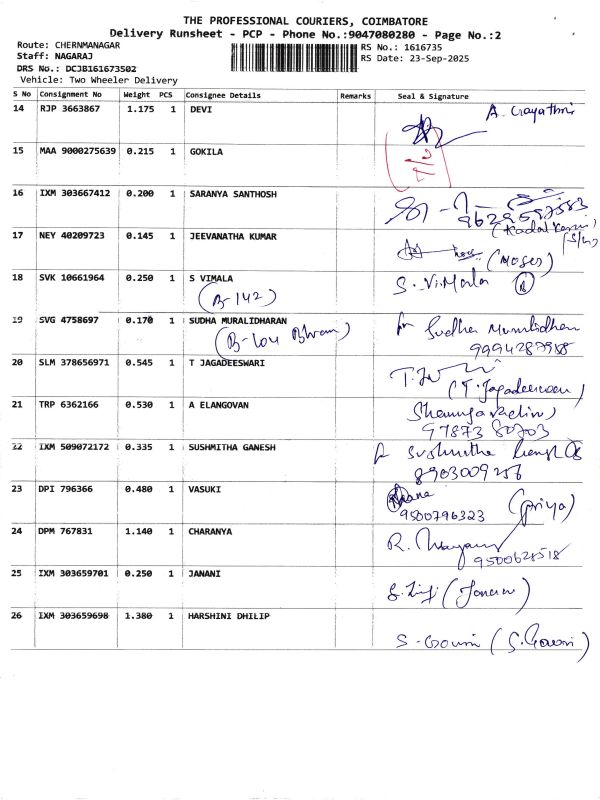 THE PROFESSIONAL COURIERS, COIMBATORE
Delivery Runsheet - PCP - Phone No.:9047080280 - Page No.:2
Route: CHERNMANAGAR
RS No.: 1616735
Staff: NAGARAJ
RS Date: 23-Sep-2025
DRS No.: DCJB161673502
Vehicle: Two Wheeler Delivery
S No Consignment No Weight PCS Consignee Details Remarks Seal & Signature
14 RJP 3663867 1.175 1 DEVI
A. Gayathri
15 MAA 9000275639 0.215 1 GOKILA
16 IXM 303667412 0.200 1 SARANYA SANTHOSH
17 NEY 40209723 0.145 1 JEEVANATHA KUMAR
(Moses)
18 SVK 10661964 0.250 1 S VIMALA
(B-142)
S. Vimala
19 SVG 4758697 0.170 1 SUDHA MURALIDHARAN
(B-104
Sudha Muralidharan
9994287958
20 SLM 378656971 0.545 1 T JAGADEESWARI
(T. Jagadeeswari)
21 TRP 6362166 0.530 1 A ELANGOVAN
97873 80703
22 IXM 509072172 0.335 1 SUSHMITHA GANESH
Sushmitha Ganesh
8903009256
23 DPI 796366 0.480 1 VASUKI
(Priya)
9500796323
24 DPM 767831 1.140 1 CHARANYA
9500628518
25 IXM 303659701 0.250 1 JANANI
(Janani)
26 IXM 303659698 1.380 1 HARSHINI DHILIP
S. Gowri (S. Gowri)